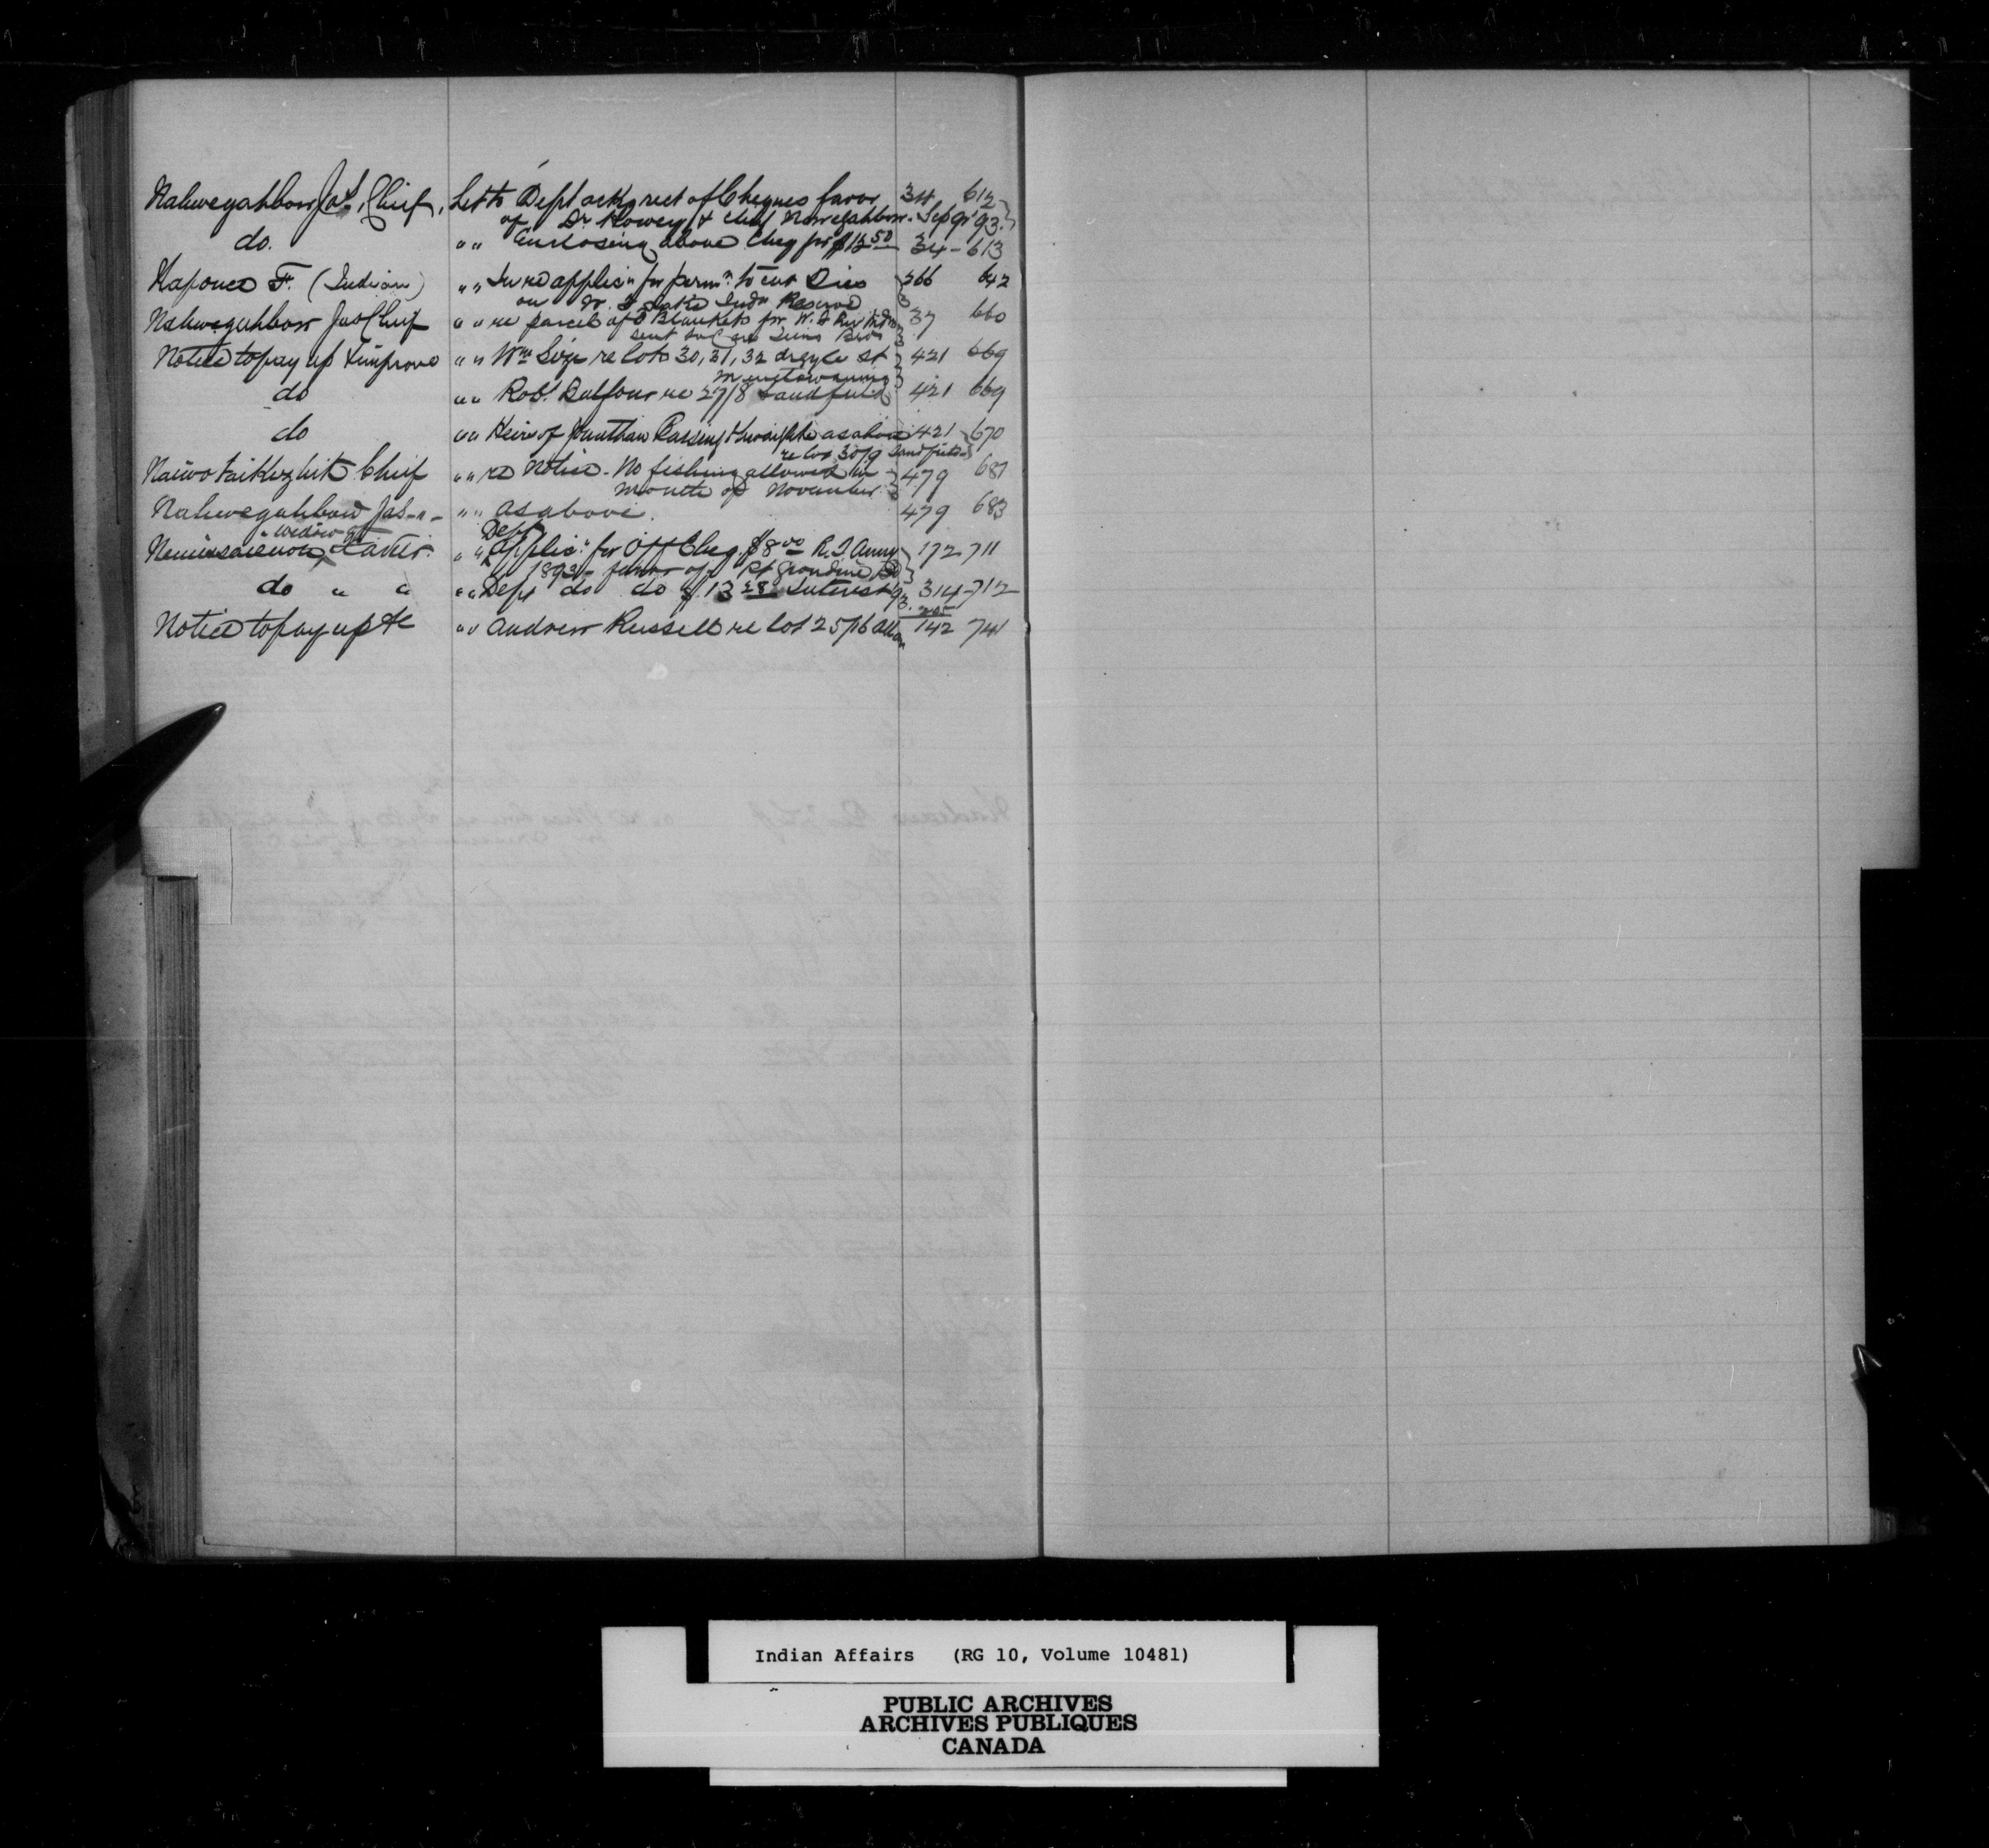 Nahwegahbow Jas, Chief, Let to Dept ackg rect of Cheques favor 34 612
of Dr Howey & Chief Nawegahbow. Sep 9' 93.
do. " " Enclosing above Cheq for $13 50 34 - 613
Naponce F. (Indian) " " In re applicn for permn to cut Dies 266 642
on W. F. Lake Indn Reserve
Nahwegahbow Jas Chief " " re parcel of 5 Blankets for W. F. Riv Indns 37 660
sent to care Sims Bros
Notice to pay up & improve " " Wm Loye re lots 30, 31, 32 Argyle st 421 669
Manitowaning
do " " Robt. Balfour re 27/8 Sandfield 421 669
do " " Heirs of Jonathan Bassingthwaighte as above 421 670
re lot 30/9 Sandfield
Chief " " re Notice - No fishing allowed in 479 681
month of November
Nahwegahbow Jas - " - " " as above. 479 683
widow of Dept
Xavier. " " Applicn for Off Cheq. $8 00 R. T. Anny 172 711
1893 - favor of Pt Grondine
do " " " " Dept do do $13 28 Interest 93. 314 - 712
205
Notice to pay up &c " " Andrew Russell re lot 25/16 Allan 142 741
Indian Affairs (RG 10, Volume 10481)
PUBLIC ARCHIVES
ARCHIVES PUBLIQUES
CANADA